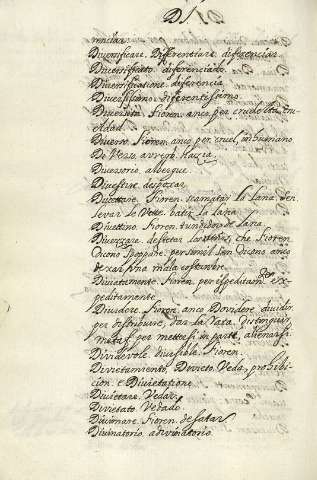 DI
Diversificare. Differentiare. diferenciar
Diversificato. diferenciado.
Diversificatione. diferencia
Diversissimo. diferentissimo.
Diversità. Fioren. anco per crueldad, en
Adad
Diverso. Fioren. anco per cruel, inhumano
Di Verso. Hazia
Diversorio. albergue.
Divestire. despojar
Divettare. Fioren. scamatar la lana.
levar le Vette. batir la lana
Divettino. Fioren. de lana
Divezzare. destetar Fioren.
Dicono Spoppare. Dicono anco
dexar una mala costumbre.
Diviatamente. Fioren. per ispeditam. ex
peditamente.
Dividere. Fioren. anco Dovidere. dividir
per distribuire, dar la Distinguir,
per mettersi in parte,
Divideuole. Fioren.
Divietamiento, Divieto. Veda, prohibi
cion. e Divietatione.
Divietare. Vedar
Divietato. Vedado
Divimare. Fioren. desatar
Divinatorio. adivinatorio.